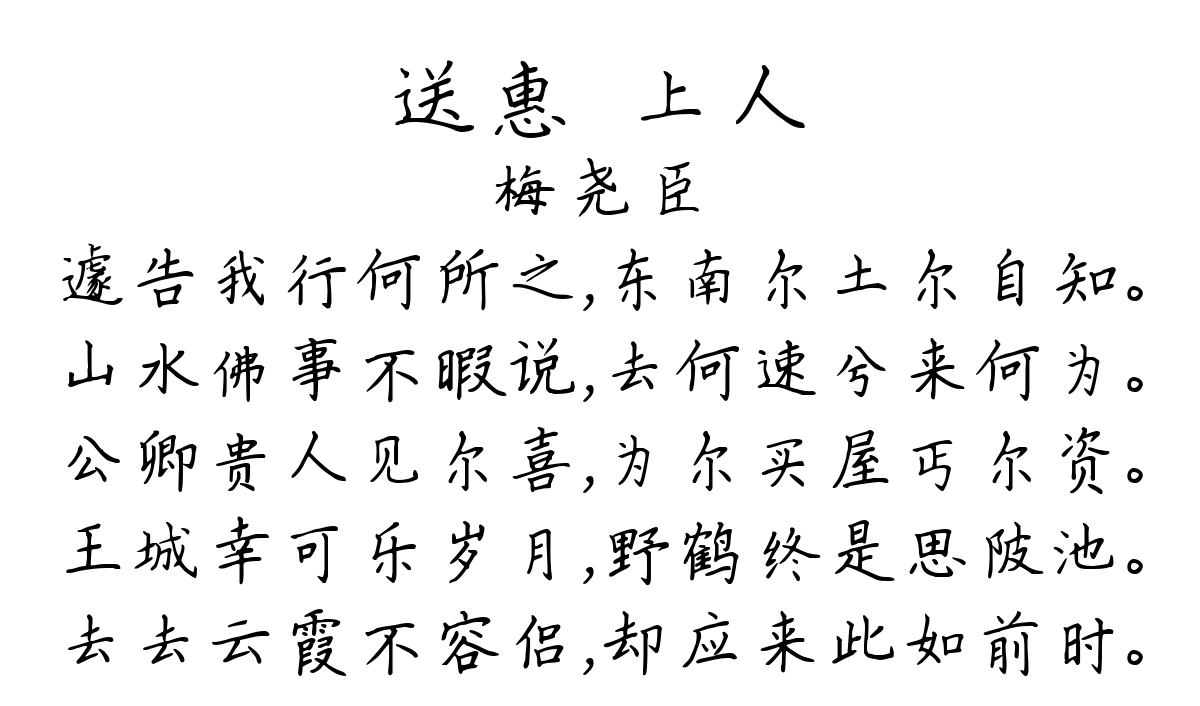 送惠 上人
梅尧臣
遽告我行何所之,东南尔土尔自知。
山水佛事不暇说,去何速兮来何为。
公卿贵人见尔喜,为尔买屋丐尔资。
王城幸可乐岁月,野鹤终是思陂池。
去去云霞不容侣,却应来此如前时。